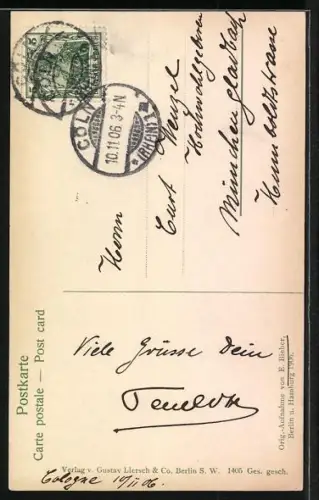 Postkarte
Carte postale — Post card
CÖLN
10.11.06. 3-4N
* (RHEIN) 1
Herrn
Curt Wenzel
Hochwohlgeboren
München gladbach
Humboldtstrasse
Viele Grüsse Dein
Orig.-Aufnahme von E. Bieber,
Berlin u. Hamburg 1906.
Verlag v. Gustav Liersch & Co. Berlin S. W. 1405 Ges. gesch.
Cologne 10/11 06.